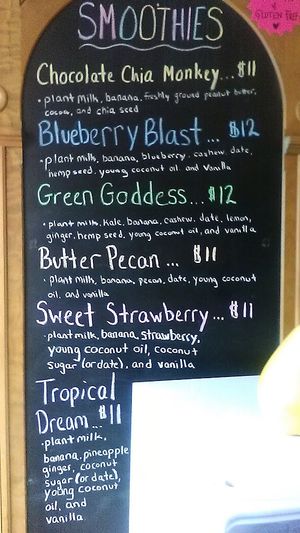 SMOOTHIES
GLUTEN FREE
Chocolate Chia Monkey... $11
• plant milk, banana, freshly ground peanut butter,
cocoa, and chia seed
Blueberry Blast ... $12
• plant milk, banana, blueberry, cashew, date,
hemp seed, young coconut oil, and vanilla
Green Goddess... $12
• plant milk, kale, banana, cashew, date, lemon,
ginger, hemp seed, young coconut oil, and vanilla
Butter Pecan ... $11
• plant milk, banana, pecan, date, young coconut
oil, and vanilla
Sweet Strawberry... $11
• plant milk, banana, strawberry,
young coconut oil, coconut
sugar (or date), and vanilla
Tropical
Dream... $11
• plant milk,
banana, pineapple
ginger, coconut
sugar (or date),
young coconut
oil, and
vanilla